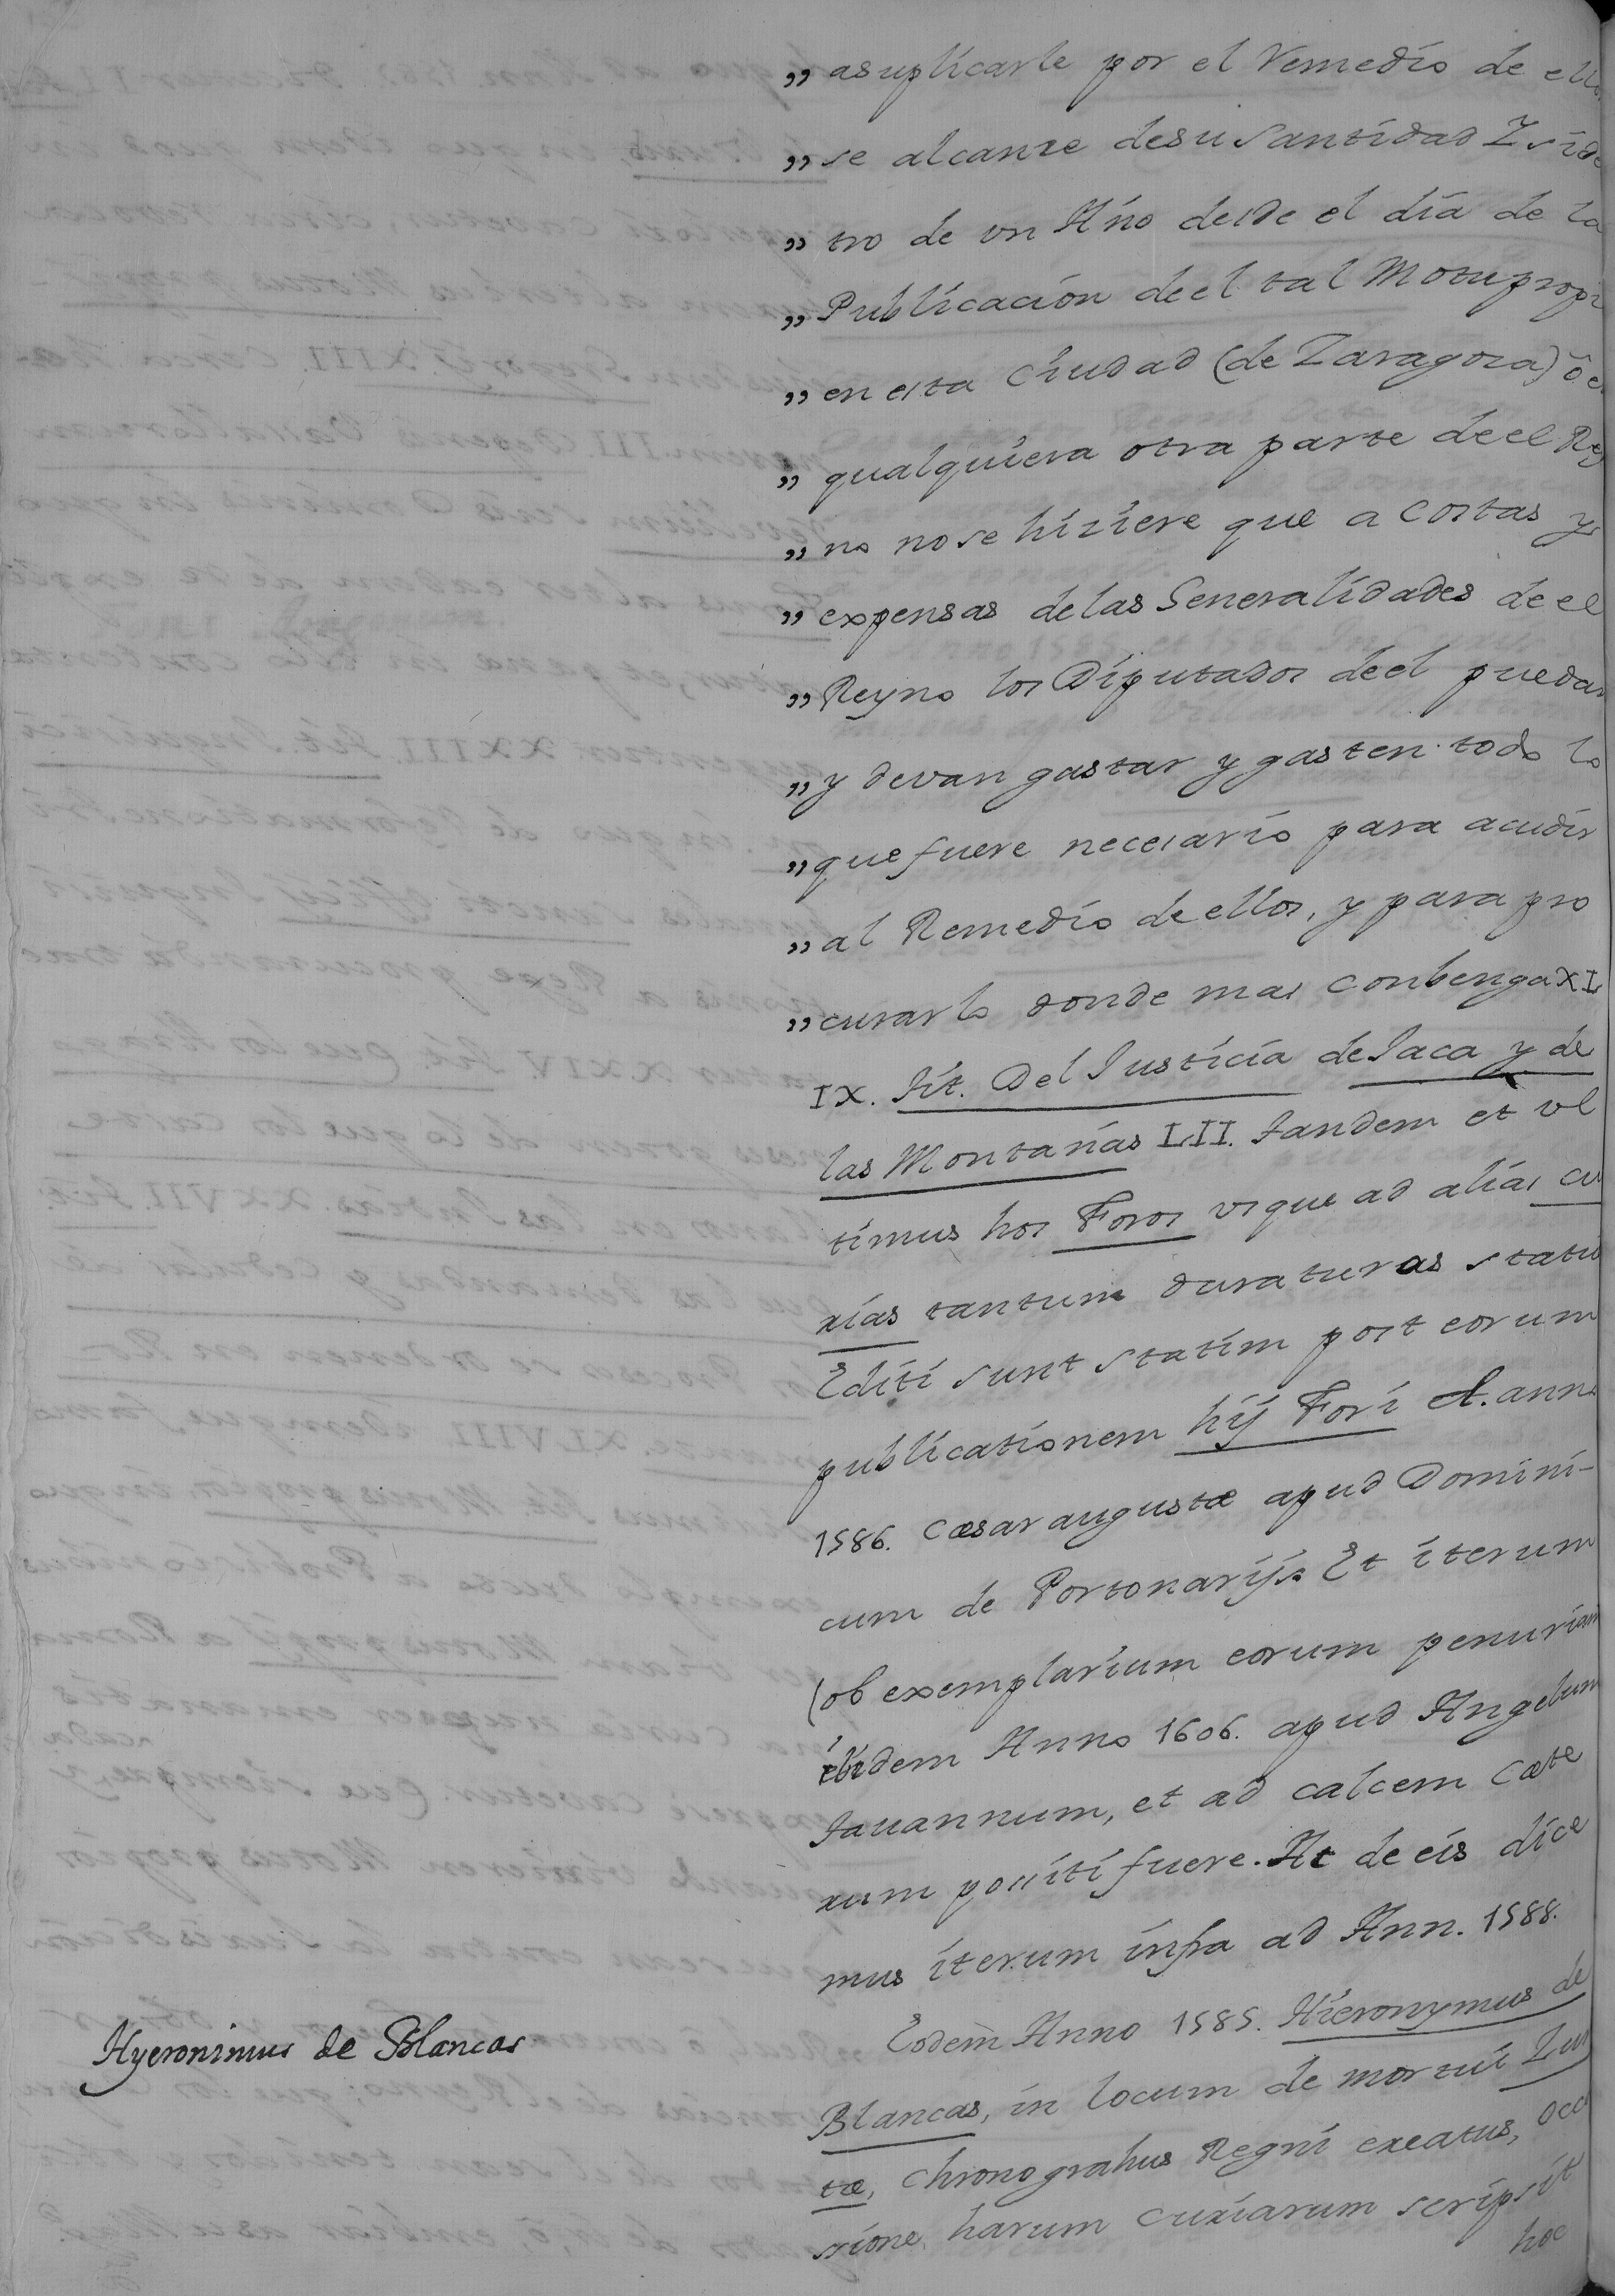 „ asuplicarle por el Remedio de ello
„ se alcanze desu Santidad Y si de
„ tro de vn Año desde el dia de la
„ Publicacion deel tal Motupropi
„ en esta Ciudad (de Zaragoza) ô e
„ qualquiera otra parte deel Rey
„ no nose hiziere que a costas y
„ expensas delas Generalidades deel
„ Reyno los Diputados deel puedan
„ y devan gastar y gasten todo lo
„ quefuere necesario para acudir
„ al Remedio deellos, y para pro
„ curarlo donde mas conbenga XL
IX. tit. Del Justicia deJaca y de
las Montañas LII. tandem et vl
timus hos Foros vsque ad alias cu
rias tantum duraturas statu
Editi sunt statim post eorum
publicationem hij Fori A. anno
1586. Cæsaraugustæ apud Domini-
cum de Portonarijs. Et iterum
(ob exemplarium eorum penuriam
ibidem Anno 1606. apud Angelum
Tauannum, et ad calcem Cæte
rum possiti fuere. At de eis dice
mus iterum infra ad Ann. 1588.
Hyeronimus de Blancas
Eodem Anno 1585. Hieronymus de
Blancas, in locum de mortui Zuri
tæ, Chronograhus Regni creatus, occa
sione harum curiarum scripsit
hoc